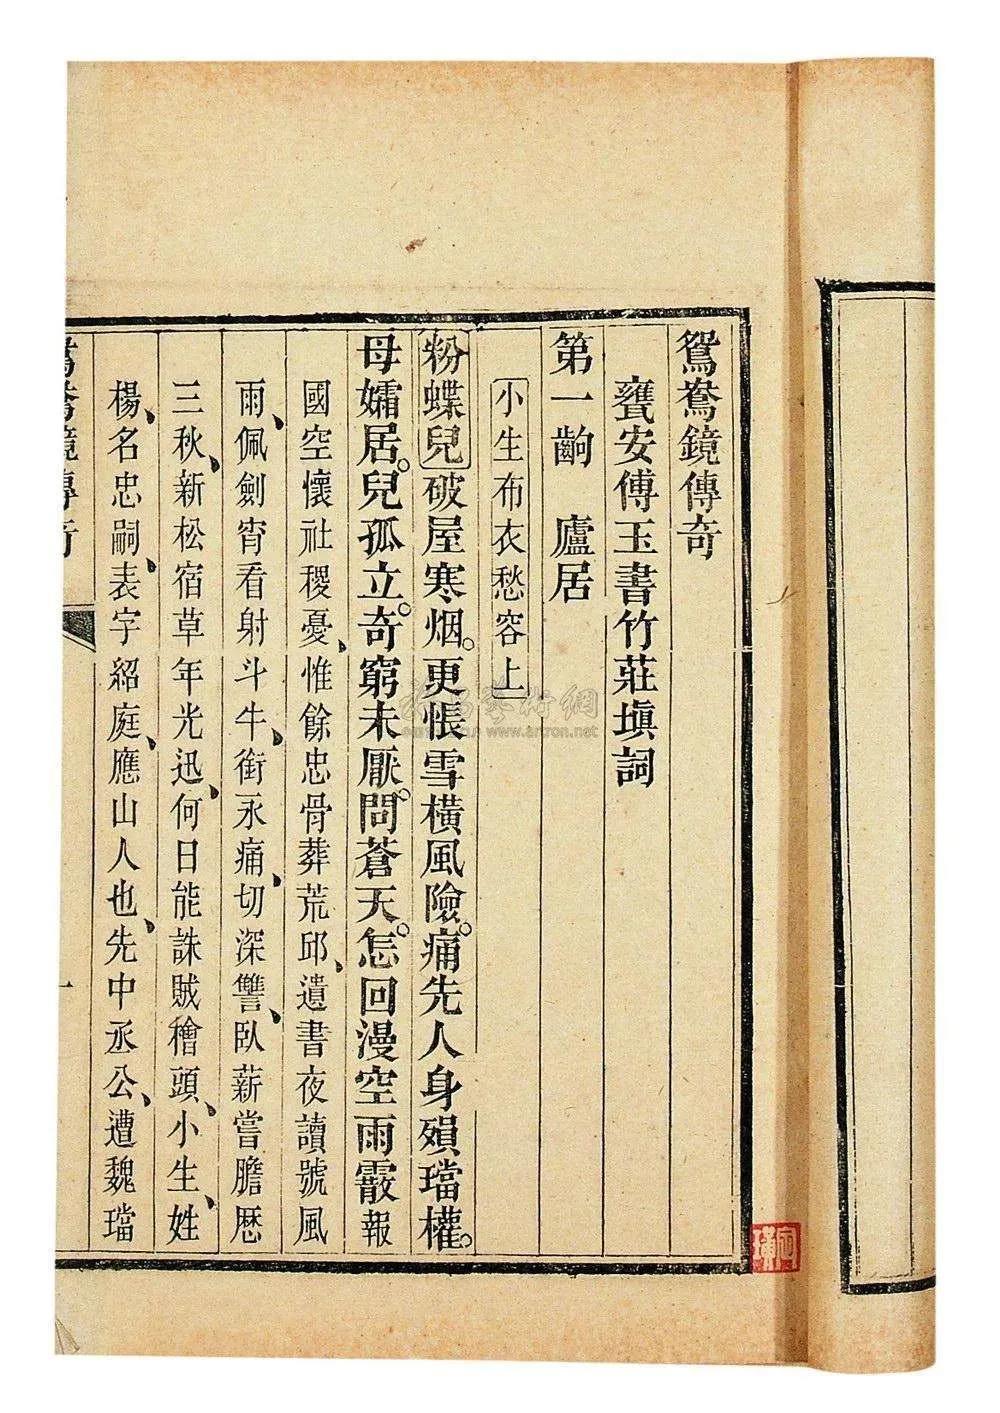 鴛鴦鏡傳奇
甕安傅玉書竹莊塡詞
第一齣 廬居
小生布衣愁容上
粉蝶兒破屋寒烟。更悵雪橫風險。痛先人身殞璫權。
母孀居。兒孤立。奇窮未厭。問蒼天。怎回漫空雨霰報
國空懷社稷憂、惟餘忠骨葬荒邱、遺書夜讀號風
雨、佩劍宵看射斗牛、銜永痛、切深讐、臥薪嘗膽歷
三秋、新松宿草年光迅、何日能誅賊檜頭、小生、姓
楊、名忠嗣、表字紹庭、應山人也、先中丞公、遭魏璫
鴛鴦鏡傳奇
一
www.artron.net